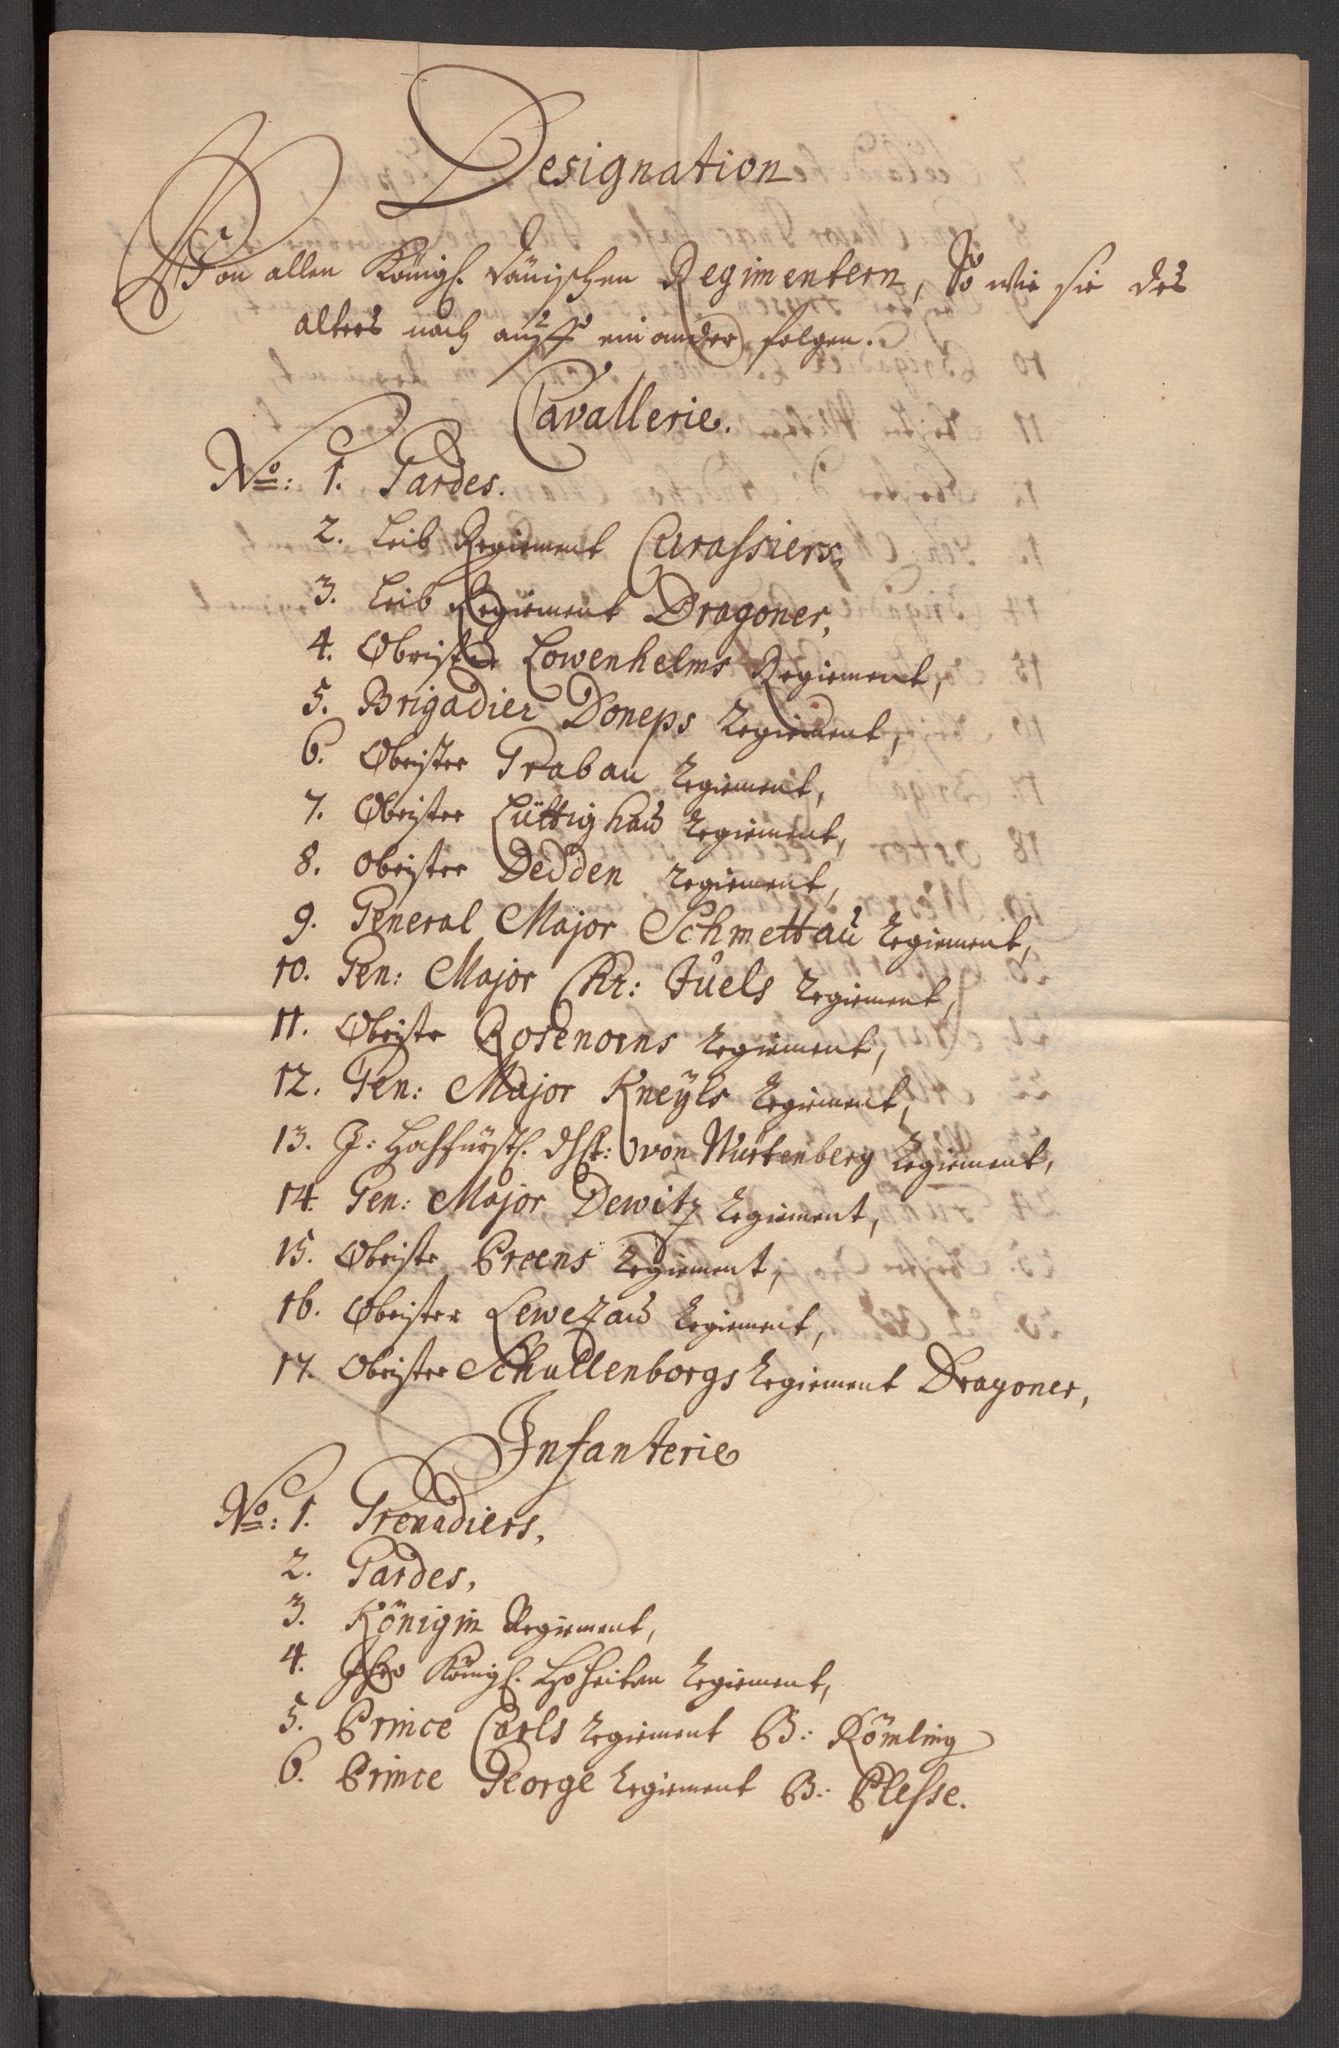 Designation
Von allen Königl. dänischen Regimentern, So wie sie des
alters nach auff ein ander folgen.
Cavallerie.
No: 1. Gardes.
2. Leib Regiement Curassiers,
3. Leib Regiement Dragoner,
4. Obrister Lowenhelms Regiement,
5. Brigadier Doneps Regiement,
6. Obrister Grabau Regiement,
7. Obrister Lüttighaus Regiement,
8. Obrister Dedden Regiement,
9. General Major Schmettau Regiement,
10. Gen: Major Chr: Juels Regiement,
11. Obrister Rosenorns Regiement,
12. Gen: Major Kneyls Regiement,
13. J: Hochfürstl. dhlt: von Würtenberg Regiement,
14. Gen: Major Dewitz Regiement,
15. Obrister Preens Regiement,
16. Obrister Lewezau Regiement,
17. Obrister Schullenborgs Regiement Dragoner,
Infanterie
No: 1. Grenadiers,
2. Gardes,
3. Königin Regiement,
4. Ihro Königl. Hoheiten Regiement,
5. Prince Carls Regiement B: Römling
6. Prince George Regiement B: Plesse.